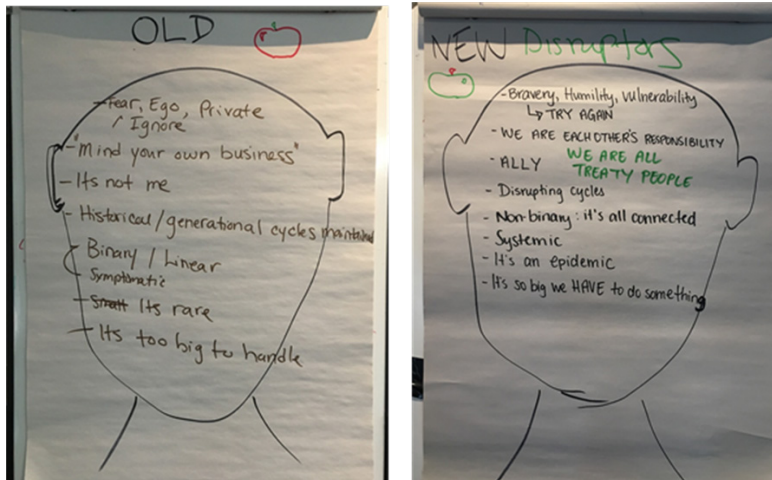 OLD
- Fear, Ego, Private
/ Ignore
- "Mind your own business"
- Its not me
- Historical/generational cycles maintained
Binary / Linear
Symptomatic
- Small Its rare
- Its too big to handle
NEW Disruptors
- Bravery, Humility, Vulnerability
↳ TRY AGAIN
- WE ARE EACHOTHER'S RESPONSIBILITY
- ALLY WE ARE ALL
TREATY PEOPLE
- Disrupting cycles
- Non-binary: it's all connected
- Systemic
- It's an epidemic
- It's so big we HAVE to do something